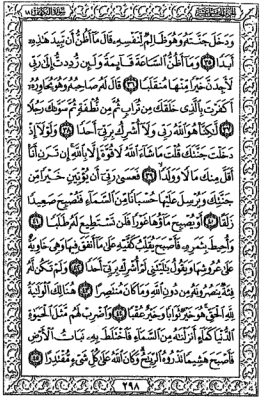 وَدَخَلَ جَنَّتَهُ وَهُوَ ظَالِمٌ لِنَفْسِهِ قَالَ مَا أَظُنُّ أَن تَبِيدَ هَٰذِهِ
أَبَدًا ﴿٣٥﴾ وَمَا أَظُنُّ السَّاعَةَ قَائِمَةً وَلَئِن رُّدِدتُّ إِلَىٰ رَبِّي
لَأَجِدَنَّ خَيْرًا مِّنْهَا مُنقَلَبًا ﴿٣٦﴾ قَالَ لَهُ صَاحِبُهُ وَهُوَ يُحَاوِرُهُ
أَكَفَرْتَ بِالَّذِي خَلَقَكَ مِن تُرَابٍ ثُمَّ مِن نُّطْفَةٍ ثُمَّ سَوَّاكَ رَجُلًا
﴿٣٧﴾ لَّٰكِنَّا هُوَ اللَّهُ رَبِّي وَلَا أُشْرِكُ بِرَبِّي أَحَدًا ﴿٣٨﴾ وَلَوْلَا إِذْ
دَخَلْتَ جَنَّتَكَ قُلْتَ مَا شَاءَ اللَّهُ لَا قُوَّةَ إِلَّا بِاللَّهِ إِن تَرَنِ أَنَا
أَقَلَّ مِنكَ مَالًا وَوَلَدًا ﴿٣٩﴾ فَعَسَىٰ رَبِّي أَن يُؤْتِيَنِ خَيْرًا مِّن
جَنَّتِكَ وَيُرْسِلَ عَلَيْهَا حُسْبَانًا مِّنَ السَّمَاءِ فَتُصْبِحَ صَعِيدًا
زَلَقًا ﴿٤٠﴾ أَوْ يُصْبِحَ مَاؤُهَا غَوْرًا فَلَن تَسْتَطِيعَ لَهُ طَلَبًا ﴿٤١﴾
وَأُحِيطَ بِثَمَرِهِ فَأَصْبَحَ يُقَلِّبُ كَفَّيْهِ عَلَىٰ مَا أَنفَقَ فِيهَا وَهِيَ خَاوِيَةٌ
عَلَىٰ عُرُوشِهَا وَيَقُولُ يَا لَيْتَنِي لَمْ أُشْرِكْ بِرَبِّي أَحَدًا ﴿٤٢﴾ وَلَمْ تَكُن لَّهُ
فِئَةٌ يَنصُرُونَهُ مِن دُونِ اللَّهِ وَمَا كَانَ مُنتَصِرًا ﴿٤٣﴾ هُنَالِكَ الْوَلَايَةُ
لِلَّهِ الْحَقِّ هُوَ خَيْرٌ ثَوَابًا وَخَيْرٌ عُقْبًا ﴿٤٤﴾ وَاضْرِبْ لَهُم مَّثَلَ الْحَيَاةِ
الدُّنْيَا كَمَاءٍ أَنزَلْنَاهُ مِنَ السَّمَاءِ فَاخْتَلَطَ بِهِ نَبَاتُ الْأَرْضِ
فَأَصْبَحَ هَشِيمًا تَذْرُوهُ الرِّيَاحُ وَكَانَ اللَّهُ عَلَىٰ كُلِّ شَيْءٍ مُّقْتَدِرًا ﴿٤٥﴾
٢٩٨